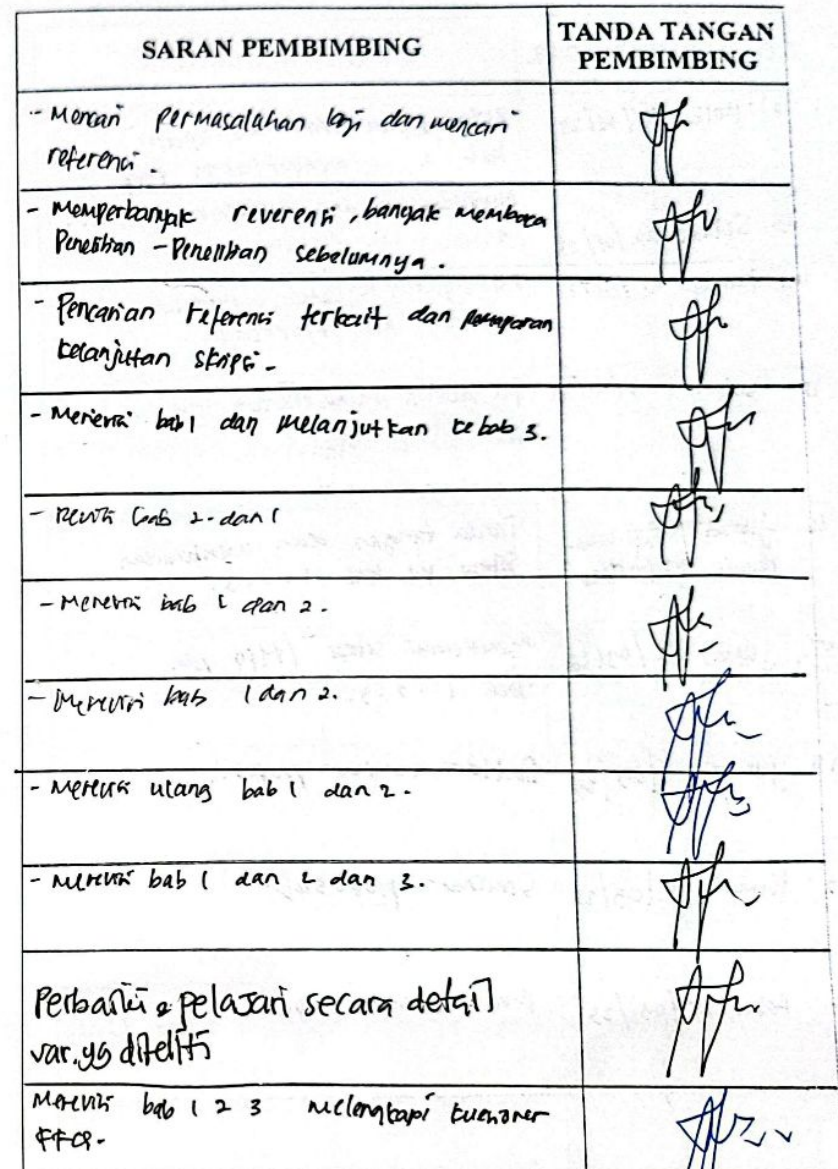 SARAN PEMBIMBING
TANDA TANGAN
PEMBIMBING
- Mencari permasalahan lagi dan mencari
referensi.
- Memperbanyak reverensi, banyak membaca
Penelitian - Penelitian sebelumnya.
- Pencarian referensi terkait dan pemaparan
kelanjutan skripsi.
- Merievisi bab 1 dan melanjutkan ke bab 3.
- Revisi bab 2. dan 1
- Merevisi bab 1 dan 2.
- Merevisi bab 1 dan 2.
- Merevisi ulang bab 1 dan 2.
- Merevisi bab 1 dan 2 dan 3.
Perbaiki & pelajari secara detail
var. yg diteliti
Merevisi bab 1 2 3 melengkapi kuesioner
FFQ.